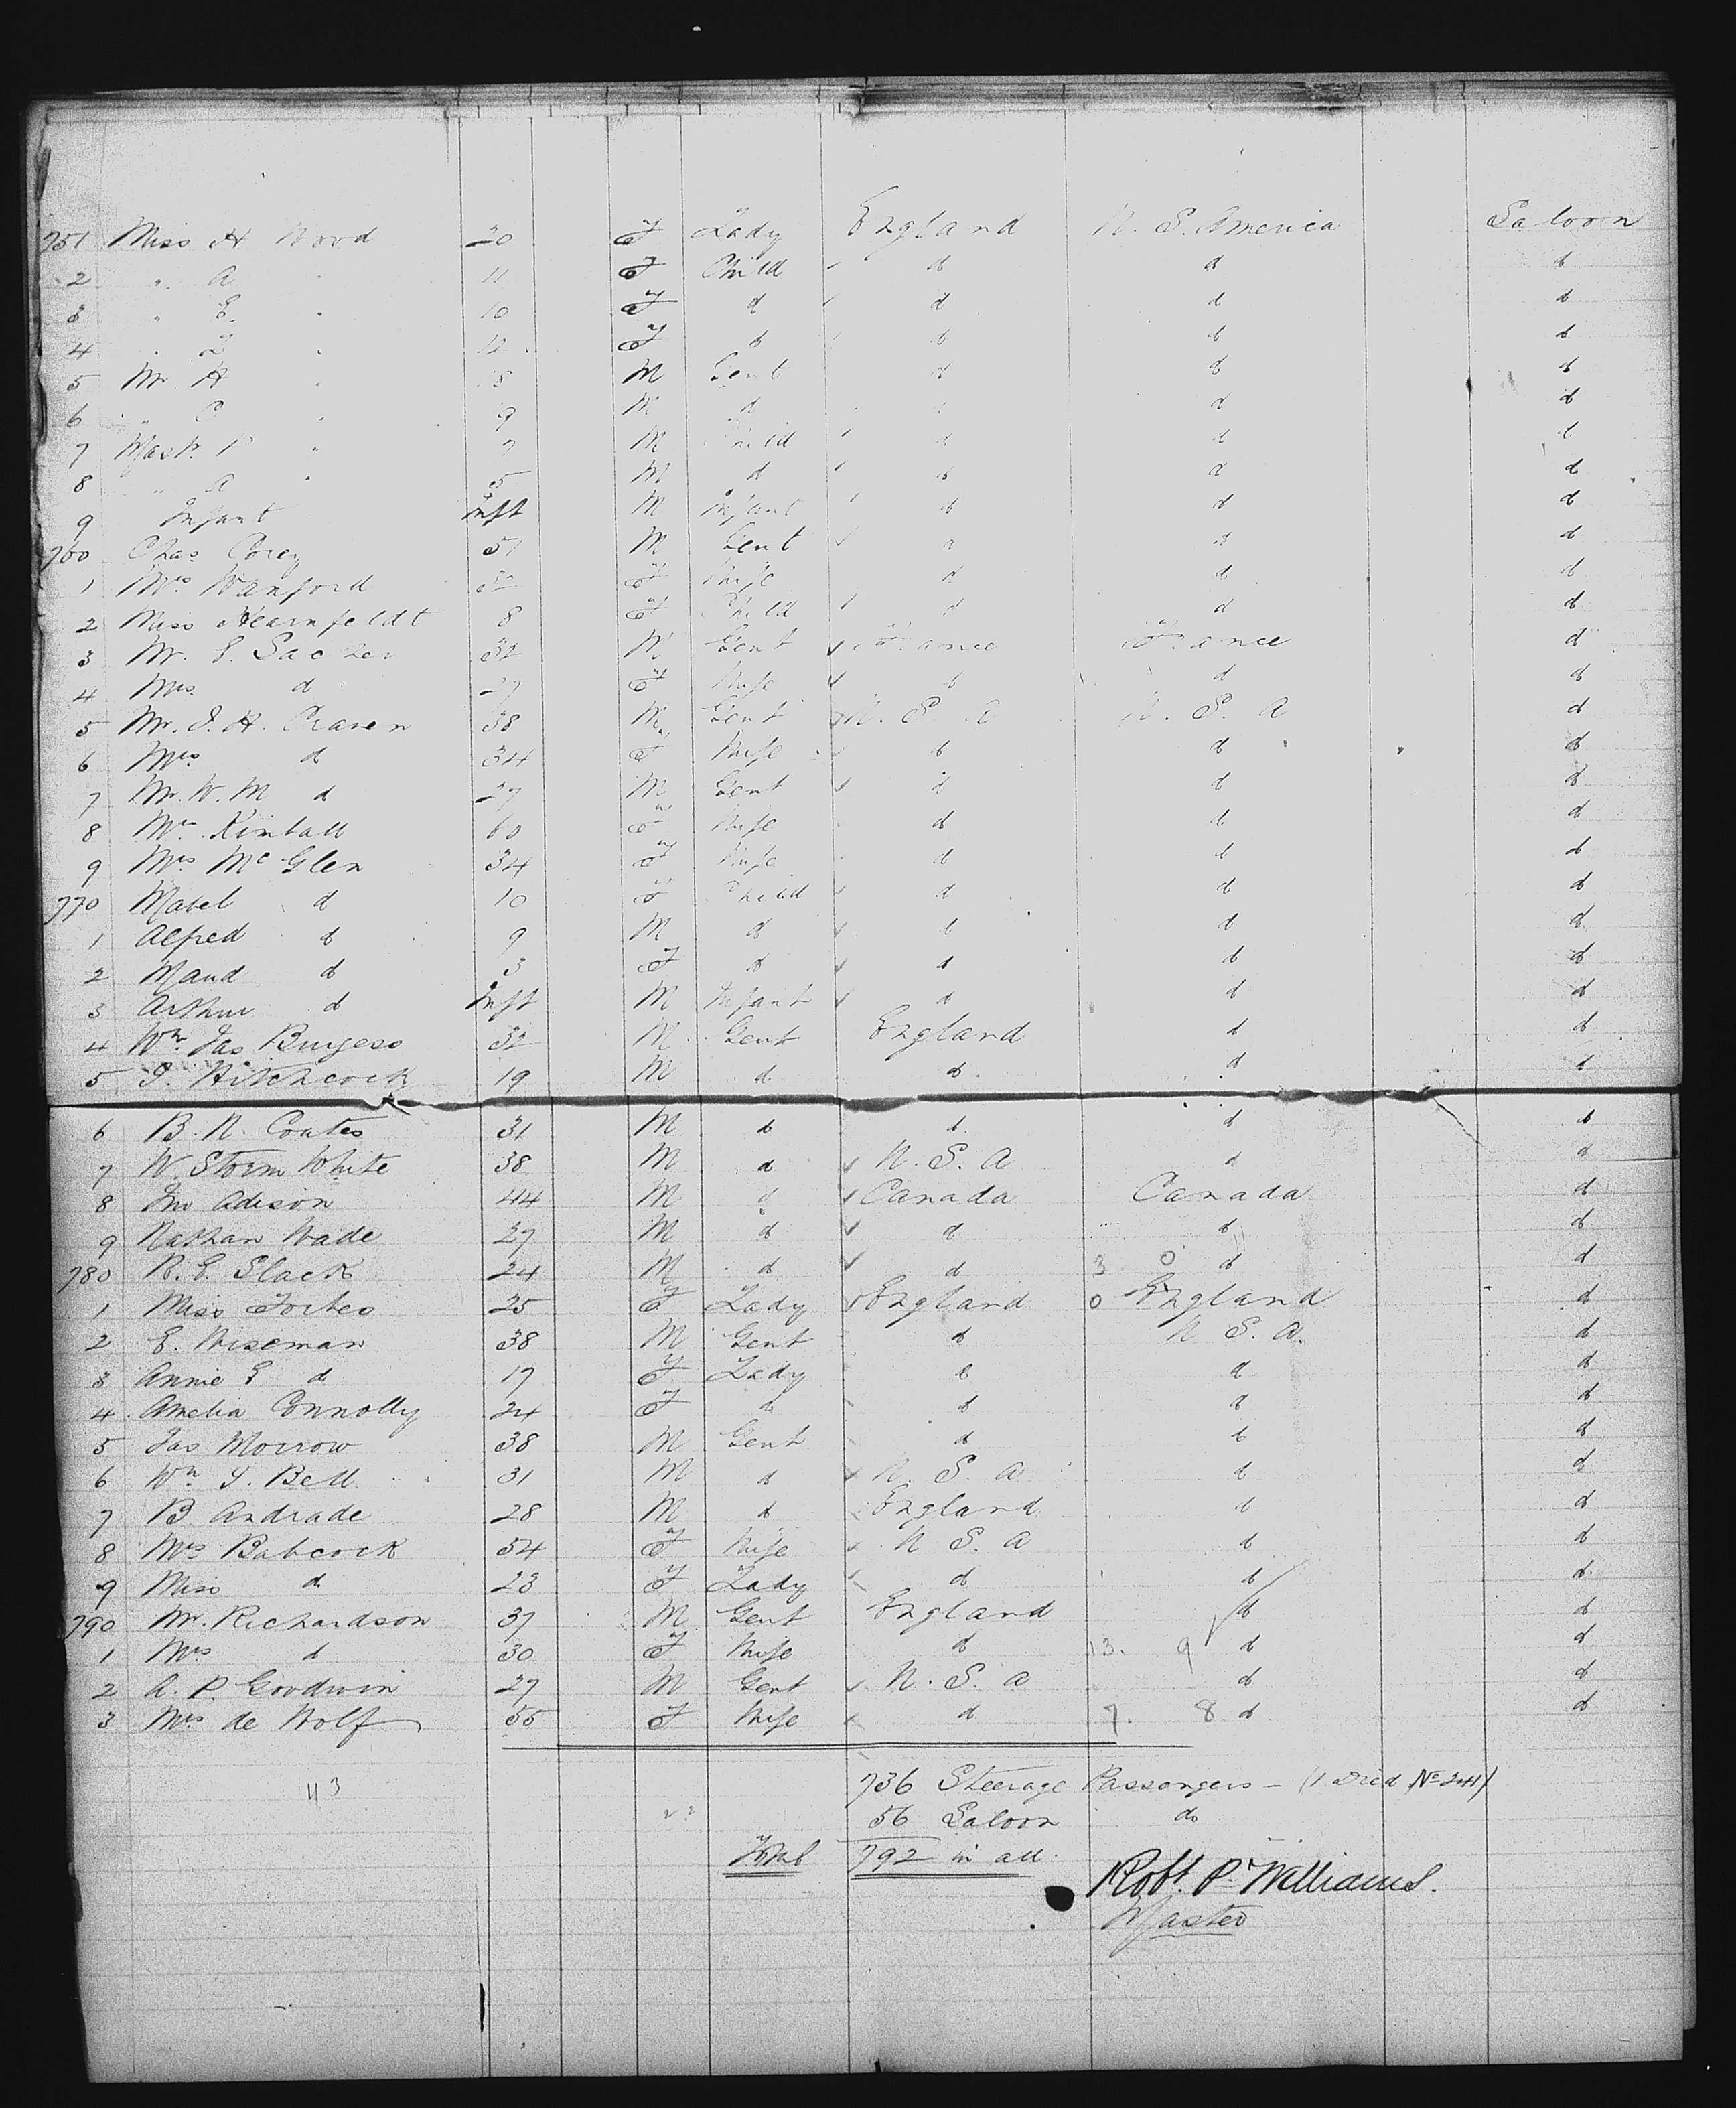 751 Miss H Wood 20 F Lady England U. S. America Saloon
2 " A " 11 F Child d d d
3 " E. " 10 F d d d d
4 " L " F d d d d
5 Mr. H " 18 M Gent d d d
6 " C " 9 M d d d d
7 Mastr. " 7 M Child d d d
8 " A " 5 M d d d d
9 Infant Inft M Infant d d d
760 Chas Corey 51 M Gent d d d
1 Mrs Wanford 32 F Wife d d d
2 Miss Hearnfeldt 8 F Child d d d
3 Mr. E. Sacher 32 M Gent France France d
4 Mrs d 27 F Wife d d d
5 Mr. J. H. Craven 38 M Gent U. S. A U. S. A d
6 Mrs d 34 F Wife d d d
7 Mr. W. M d 27 M Gent d d d
8 Mrs. Kimball 60 F Wife d d d
9 Mrs Mc Glen 34 F Wife d d d
770 Mabel d 10 F Child d d d
1 Alfred d 9 M d d d d
2 Maud d 3 F d d d d
3 Arthur d Inft M Infant d d d
4 Wm. Jas Burgess 32 M Gent England d d
5 J. Hitchcock 19 M d d d d
6 B. N. Coates 31 M d d d d
7 W. Storm White 38 M d U. S. A d d
8 Jno Adison 44 M d Canada Canada d
9 Nathan Wade 27 M d d d d
780 R. E. Slack 24 M d d 3 0 d d
1 Miss Forbes 25 F Lady England 0 England d
2 E. Wiseman 38 M Gent d U S. A. d
3 Annie E d 17 F Lady d d d
4 Amelia Connolly 24 F d d d d
5 Jas Morrow 38 M Gent d d d
6 Wm J. Bell 31 M d U. S. A d d
7 B Andrade 28 M d England d d
8 Mrs Babcock 54 F Wife U S. A d d
9 Miss d 23 F Lady d d d
790 Mr. Richardson 37 M Gent England d d
1 Mrs d 30 F Wife d 13. 9 d d
2 A. P. Goodwin 27 M Gent U. S. A d d
3 Mrs de Wolf 55 F Wife d 7. 8 d d
736 Steerage Passengers - (1 Died No 241)
113
56 Saloon do
Total 792 in all.
Robt. P. Williams.
Master